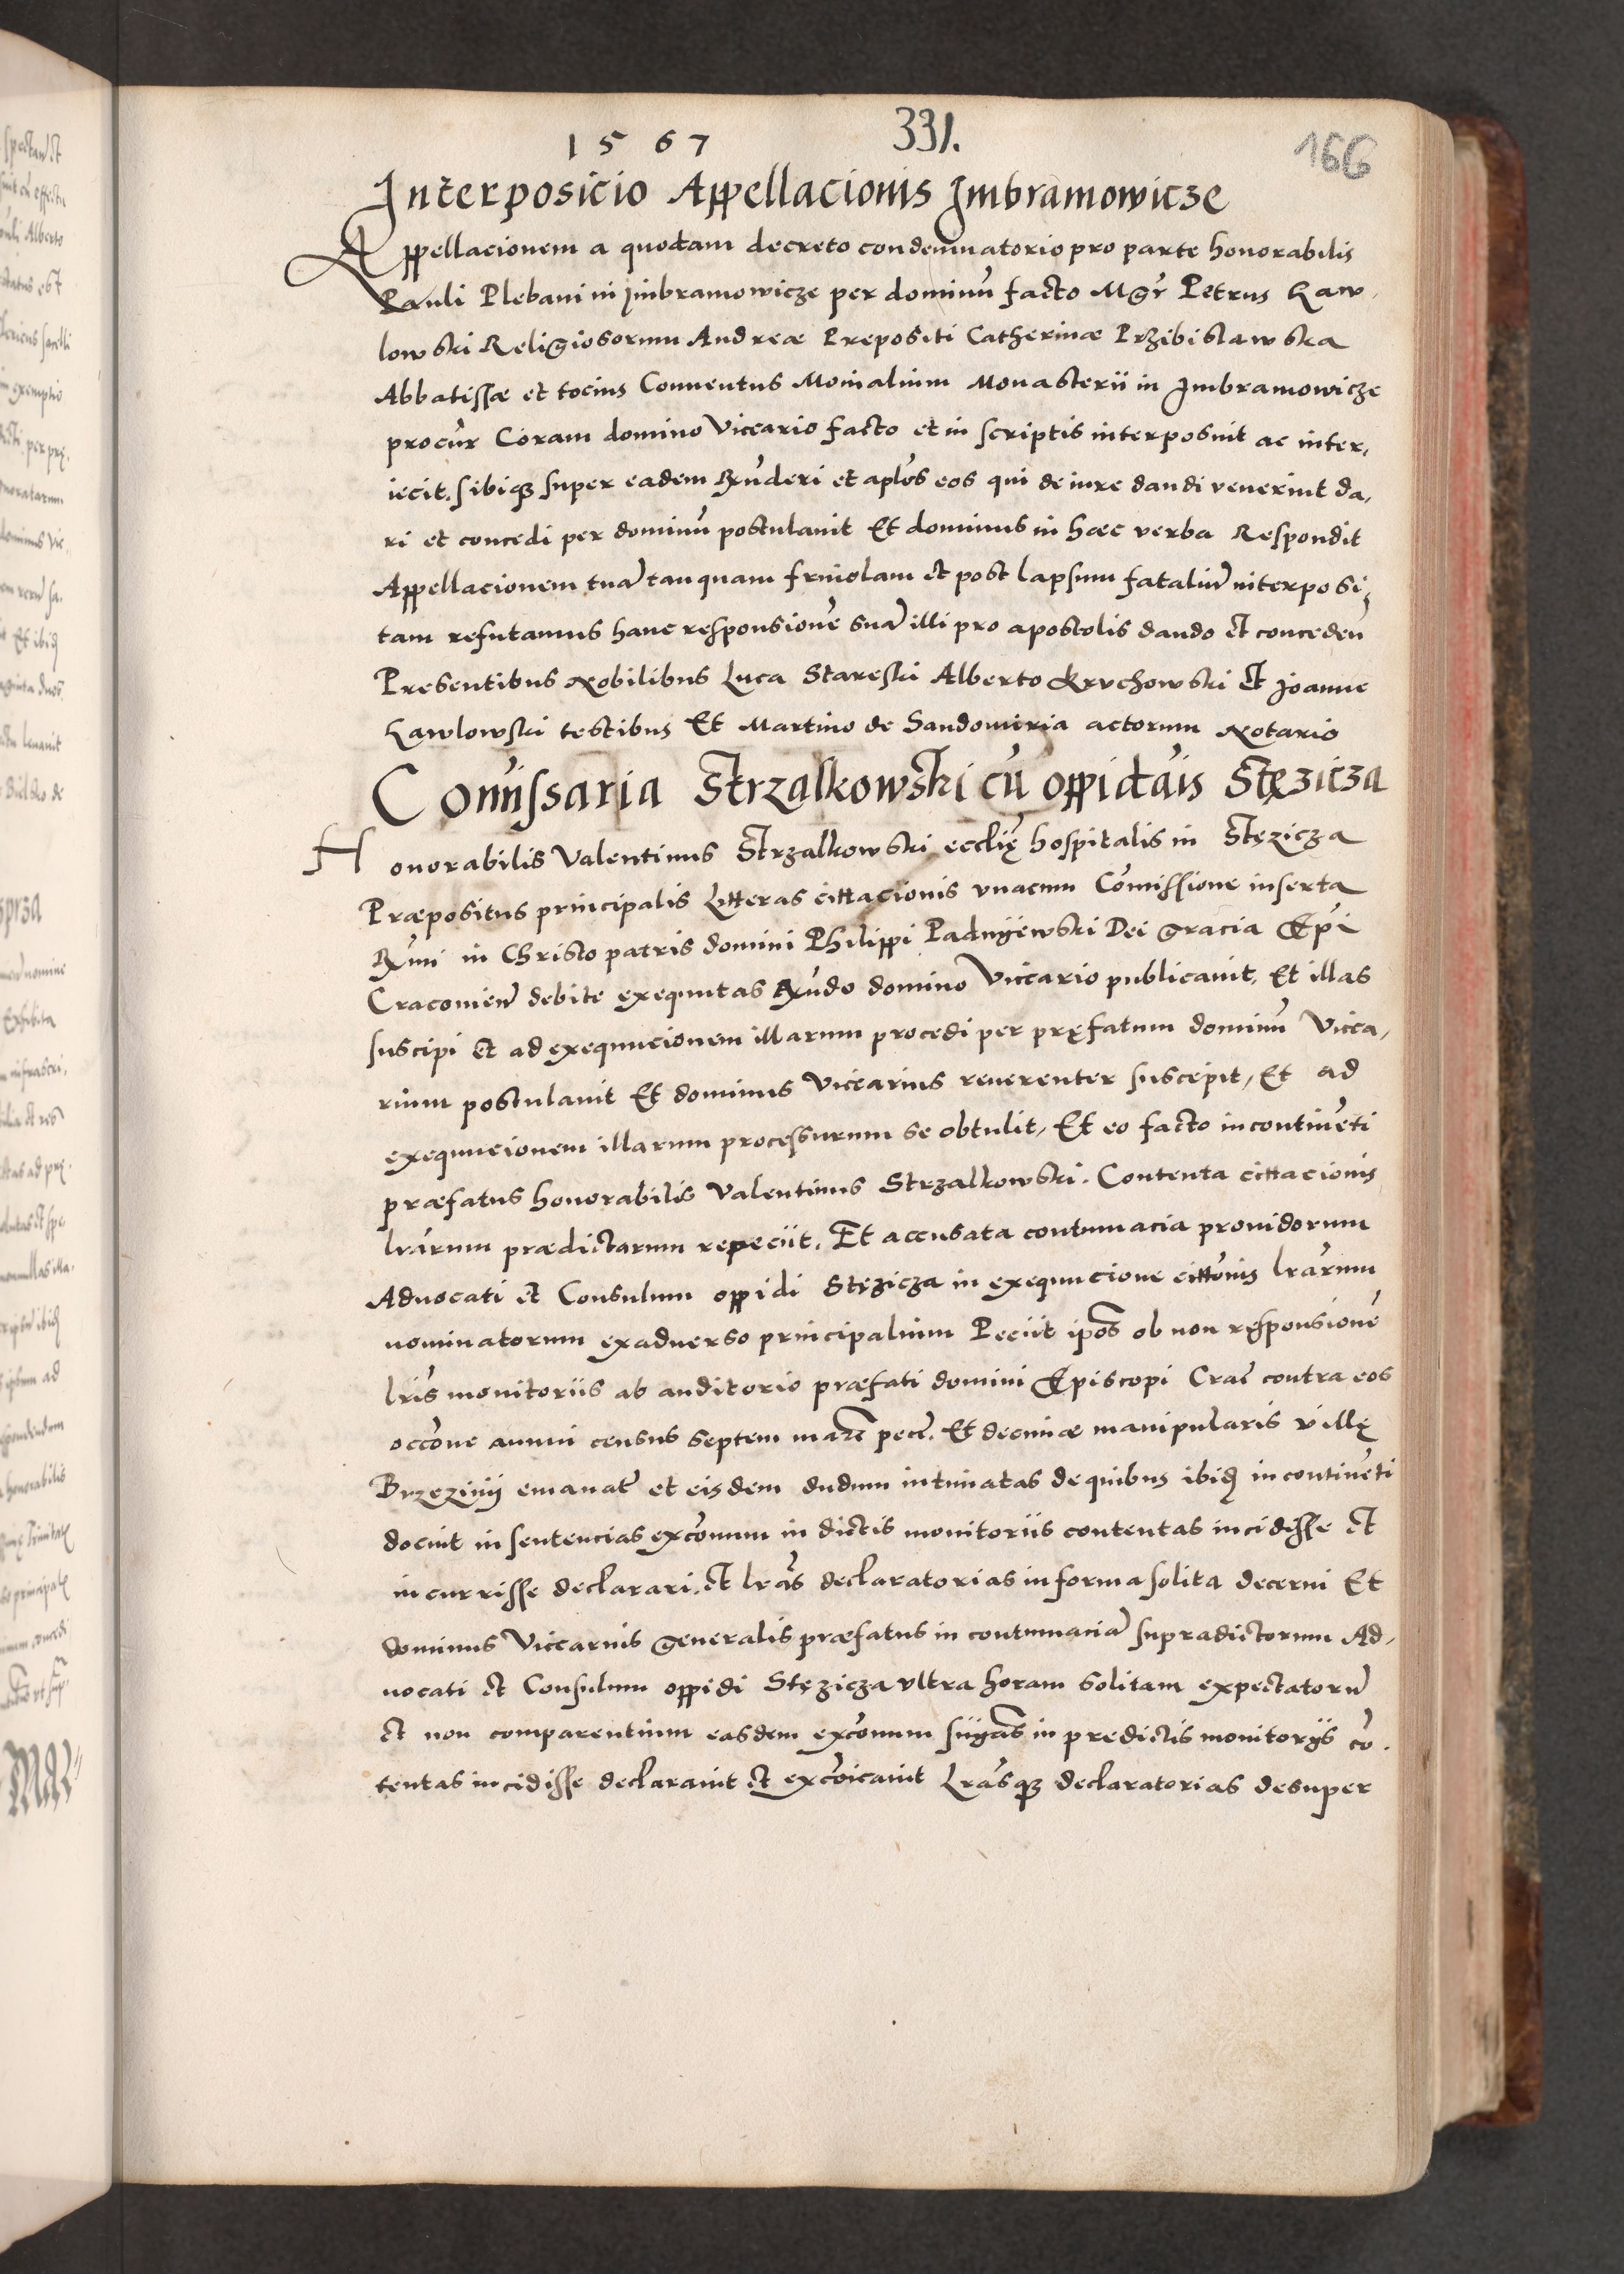 1567
331.
166
Interposicio Appellacionis Imbramowicze
Appellacionem a quodam decreto condemnatorio pro parte honorabilis
Pauli Plebani in Imbramowicze per dominũ facto Mgr̃ Petrus Raw,
lowski Religiosorum Andreæ Prepositi Catherinæ Przibislawska
Abbatissæ et tocius Conuentus Monialium Monasterii in Imbramowicze
procur̃ Coram domino Viceario facto et in scriptis interposuit ac inter,
iecit. sibiqʒ super eadem Rñderi et aplõs eos qui de iure dandi venerint da,
ri et concedi per dominũ postulauit Et dominus in hæc verba Respondit
Appellacionem tuã tanquam friuolam et post lapsum fataliũ interposi,
tam refutamus hanc responsionẽ suã illi pro apostolis dando et conceden̄
Presentibus Nobilibus Luca Stareski Alberto Kruchowski Et Joanne
Rawlowski testibus Et Martino de Sandomiria actorum Notario
Com̃issaria Strzalkowski cũ oppidañis Stęzicza
Honorabilis Valentinus Strzalkowski ecclię hospitalis in Stęzicza
Præpositus principalis Litteras cittacionis vnacum Com̃issione inserta
Rx̃mi in Christo patris domini Philippi Padnijewski Dei gracia Ep̃i
Cracouien̄ debite exequutas Rx̃ndo domino Viceario publicauit, Et illas
suscipi et ad exequucionem illarum procedi per pręfatum dominũ Vicea,
rium postulauit Et dominus Vicearius reuerenter suscepit, Et ad
exequucionem illarum processurum se obtulit, Et eo facto incontinẽti
præfatus honorabilis Valentinus Strzalkowski. Contenta cittacionis
lr̃arum prædictarum repeciit. Et accusata contumacia prouidorum
Aduocati et Consulum oppidi Stęzicza in exequucione cittõnis lr̃arum
nominatorum exaduerso principalium Peciit ip̃os ob non responsionẽ
lr̃is monitoriis ab auditorio præfati domini Episcopi Crac̃ contra eos
occõne annui census septem marc̃ pecc̃. Et decimæ manipularis villę
Brzezinij emanat̃ et eisdem dudum intimatas de quibus ibiđ incontinẽti
docuit in sentencias excõmum in dictis monitoriis contentas incidisse et
incurrisse declarari, et lr̃as declaratorias in forma solita decerni Et
dominus Vicearius generalis præfatus in contumaciã supradictorum Ad,
uocati et Consulum oppidi Stęzicza vltra horam solitam expectatorũ
et non comparentium easdem excõmum sñias in predictis monitorijs cõ,
tentas incidisse declarauit et excõicauit Lr̃asqʒ declaratorias desuper